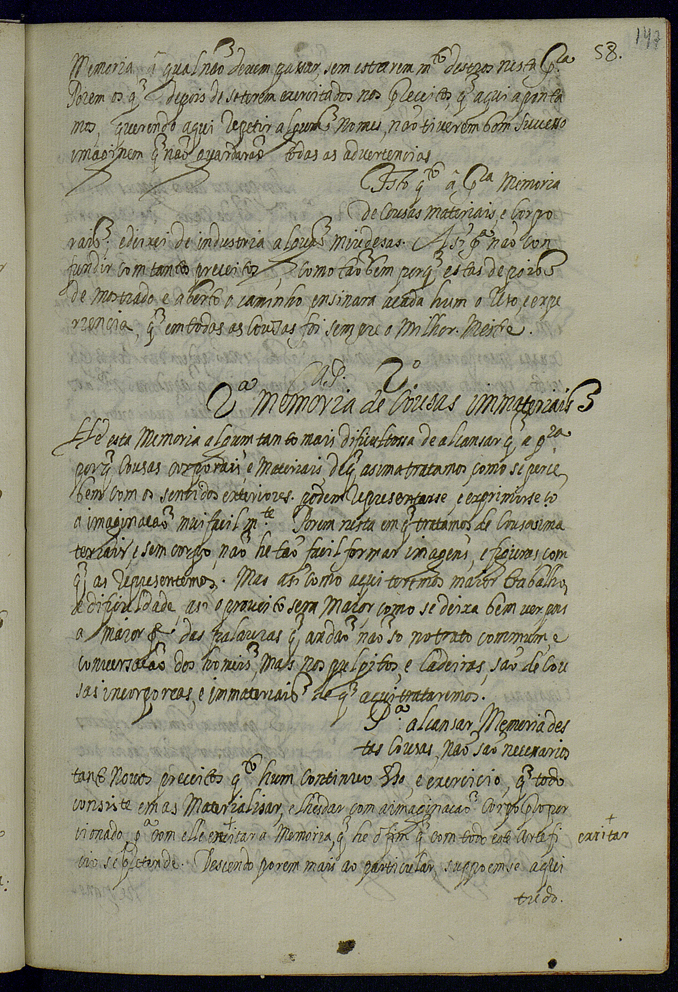 147
58.
Memoria â qual não devem passar, sem estarem m.to destros nesta p.ra
Porem os q̃ depois de se terem exercitados nos preceitos, q̃ aqui aponta
mos, querendo aqui repetir alguns nomes, não tiverem bom successo
imaginem q̃ não guardarão todas as advertencias
Isto q.to â p.ra Memoria
de Cousas materiais, e Corpo
rais: e deixei de industria alguãs miudesas. Assi p.a não con
fundir com tantos preceitos, como tãobem porq̃ estas depois
de mostrado e aberto o caminho, ensinara acada hum o uso e expe
riencia, q̃ em todas as Cousas foi sempre o Milhor Mestre.
Cap. 2.º
2.ª Memoria de Cousas immateriais
Hé esta Memoria algum tanto mais dificultosa de alcansar q̃ a p.ra
porq̃ Cousas corporais, e Materiais de q̃ asima tratamos como se perce
bem com os sentidos exteriores, podem representarse e exprimirse cõ
a imaginacão mui facilm.te. Porem nesta em q̃ tratamos de Cousas ima
teriais, e sem corpo, não he tão facil formar imagens, e figuras com
q̃ as representemos. Mas asi como aqui teremos maior trabalho,
e dificuldade, asi o proveito sera Maior, como se deixa bem ver pois
a maior p.te das palauras q̃ andão não so no trato commum, e
conversacão dos homeis, Mas nos pulpitos, e Cadeiras, são de Cou
sas incorporeas, e immateriais de q̃ aqui trataremos.
P.a alcansar Memoria des
tas Cousas, não são necesarios
tantos Novos preceitos q.to hum continuo Uso, e exercicio, q̃ todo
consiste em as Materialisar, e lhes dar com a imaginacão Corpo propor
cionado p.a com elle exsitar a Memoria, q̃ he o fim q̃ com todo este Artefi
cio se pretende. Descendo porem mais ao particular, suppoemse aqui
exsitar
tudo.